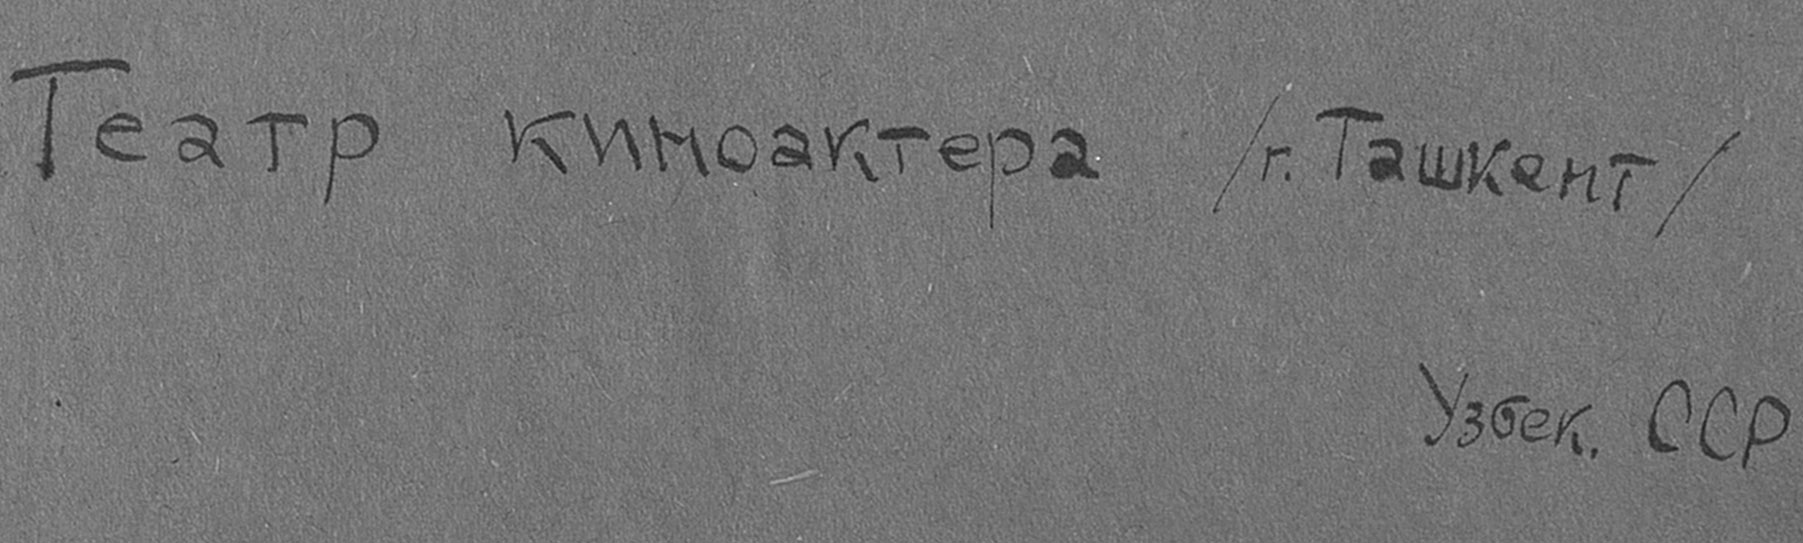 Театр киноактера /г. Ташкент/
Узбек. ССР